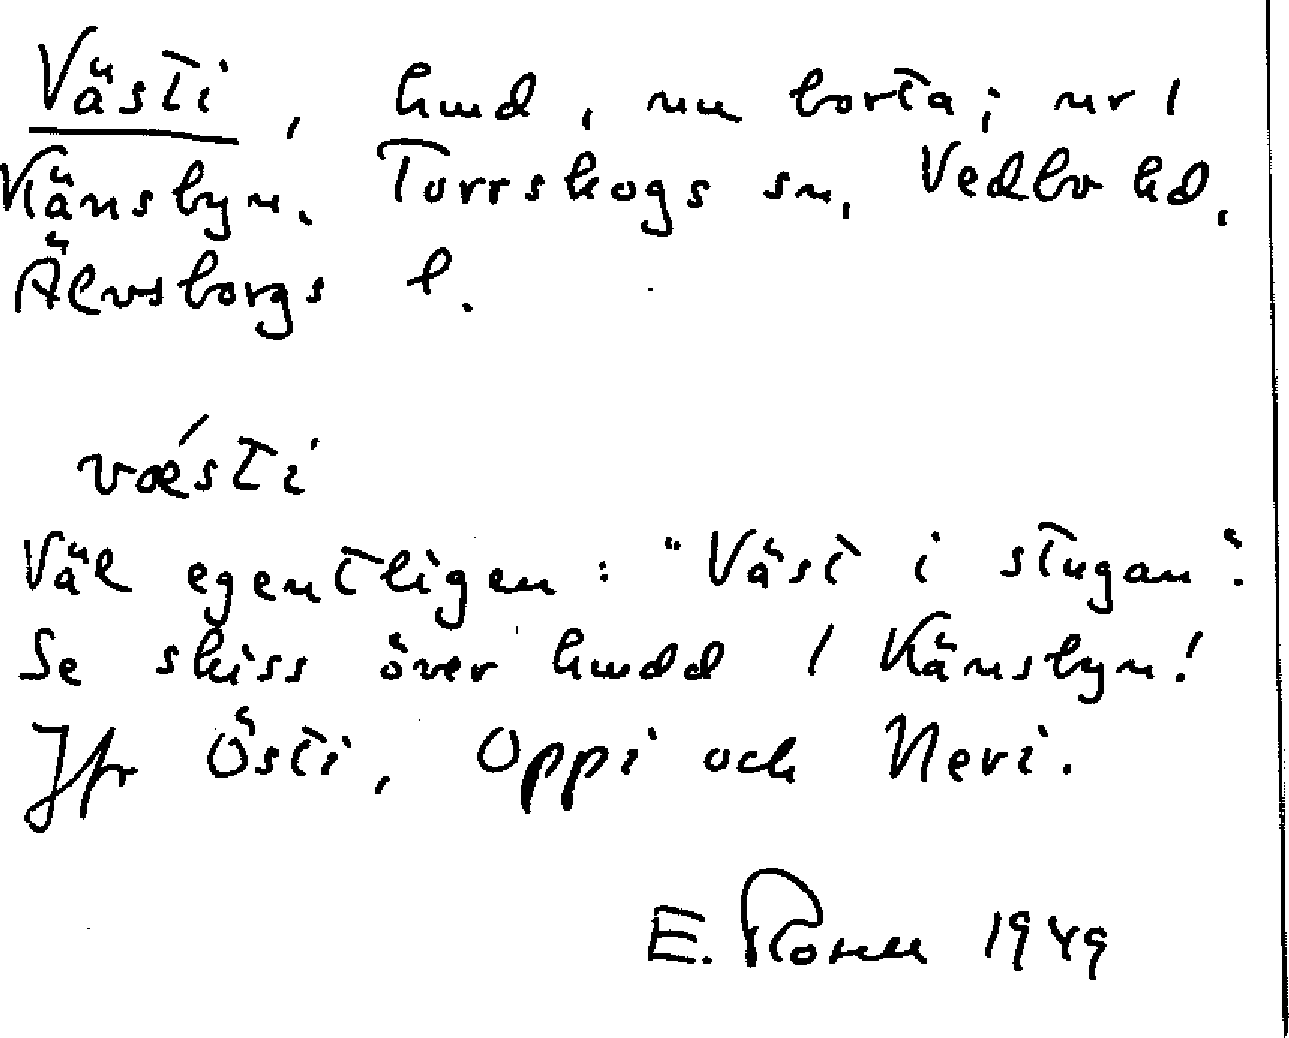 Västi, hmd, nu borta; nr 1
Känsbyn. Torrskogs sn, Vedbo hd,
Älvsborgs l.
væ´sti
Väl egentligen: "Väst i stugan".
Se skiss över hmdd 1 Känsbyn!
Jfr Östi, Oppi och Neri.
E. 1949